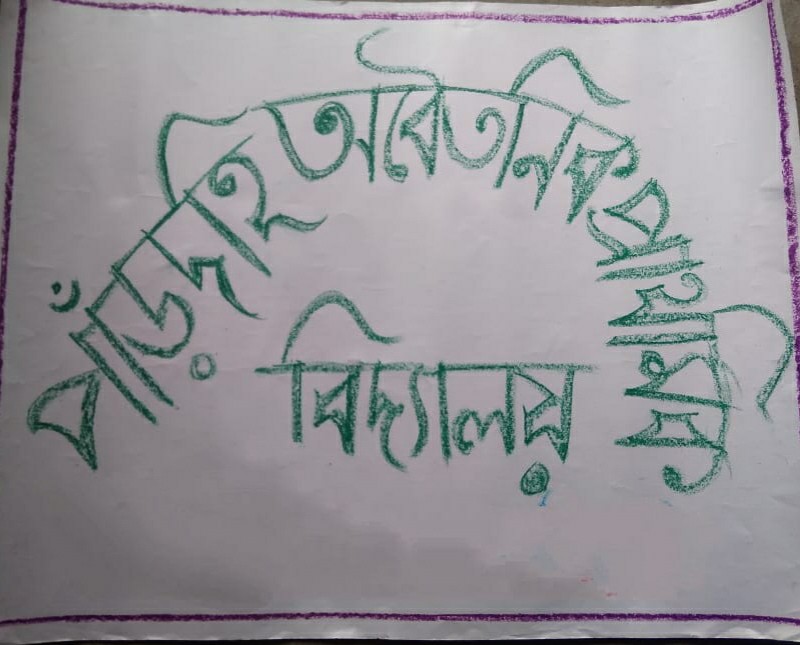 বাঁড়দহি অবৈতনিক প্রাথমিক
বিদ্যালয়